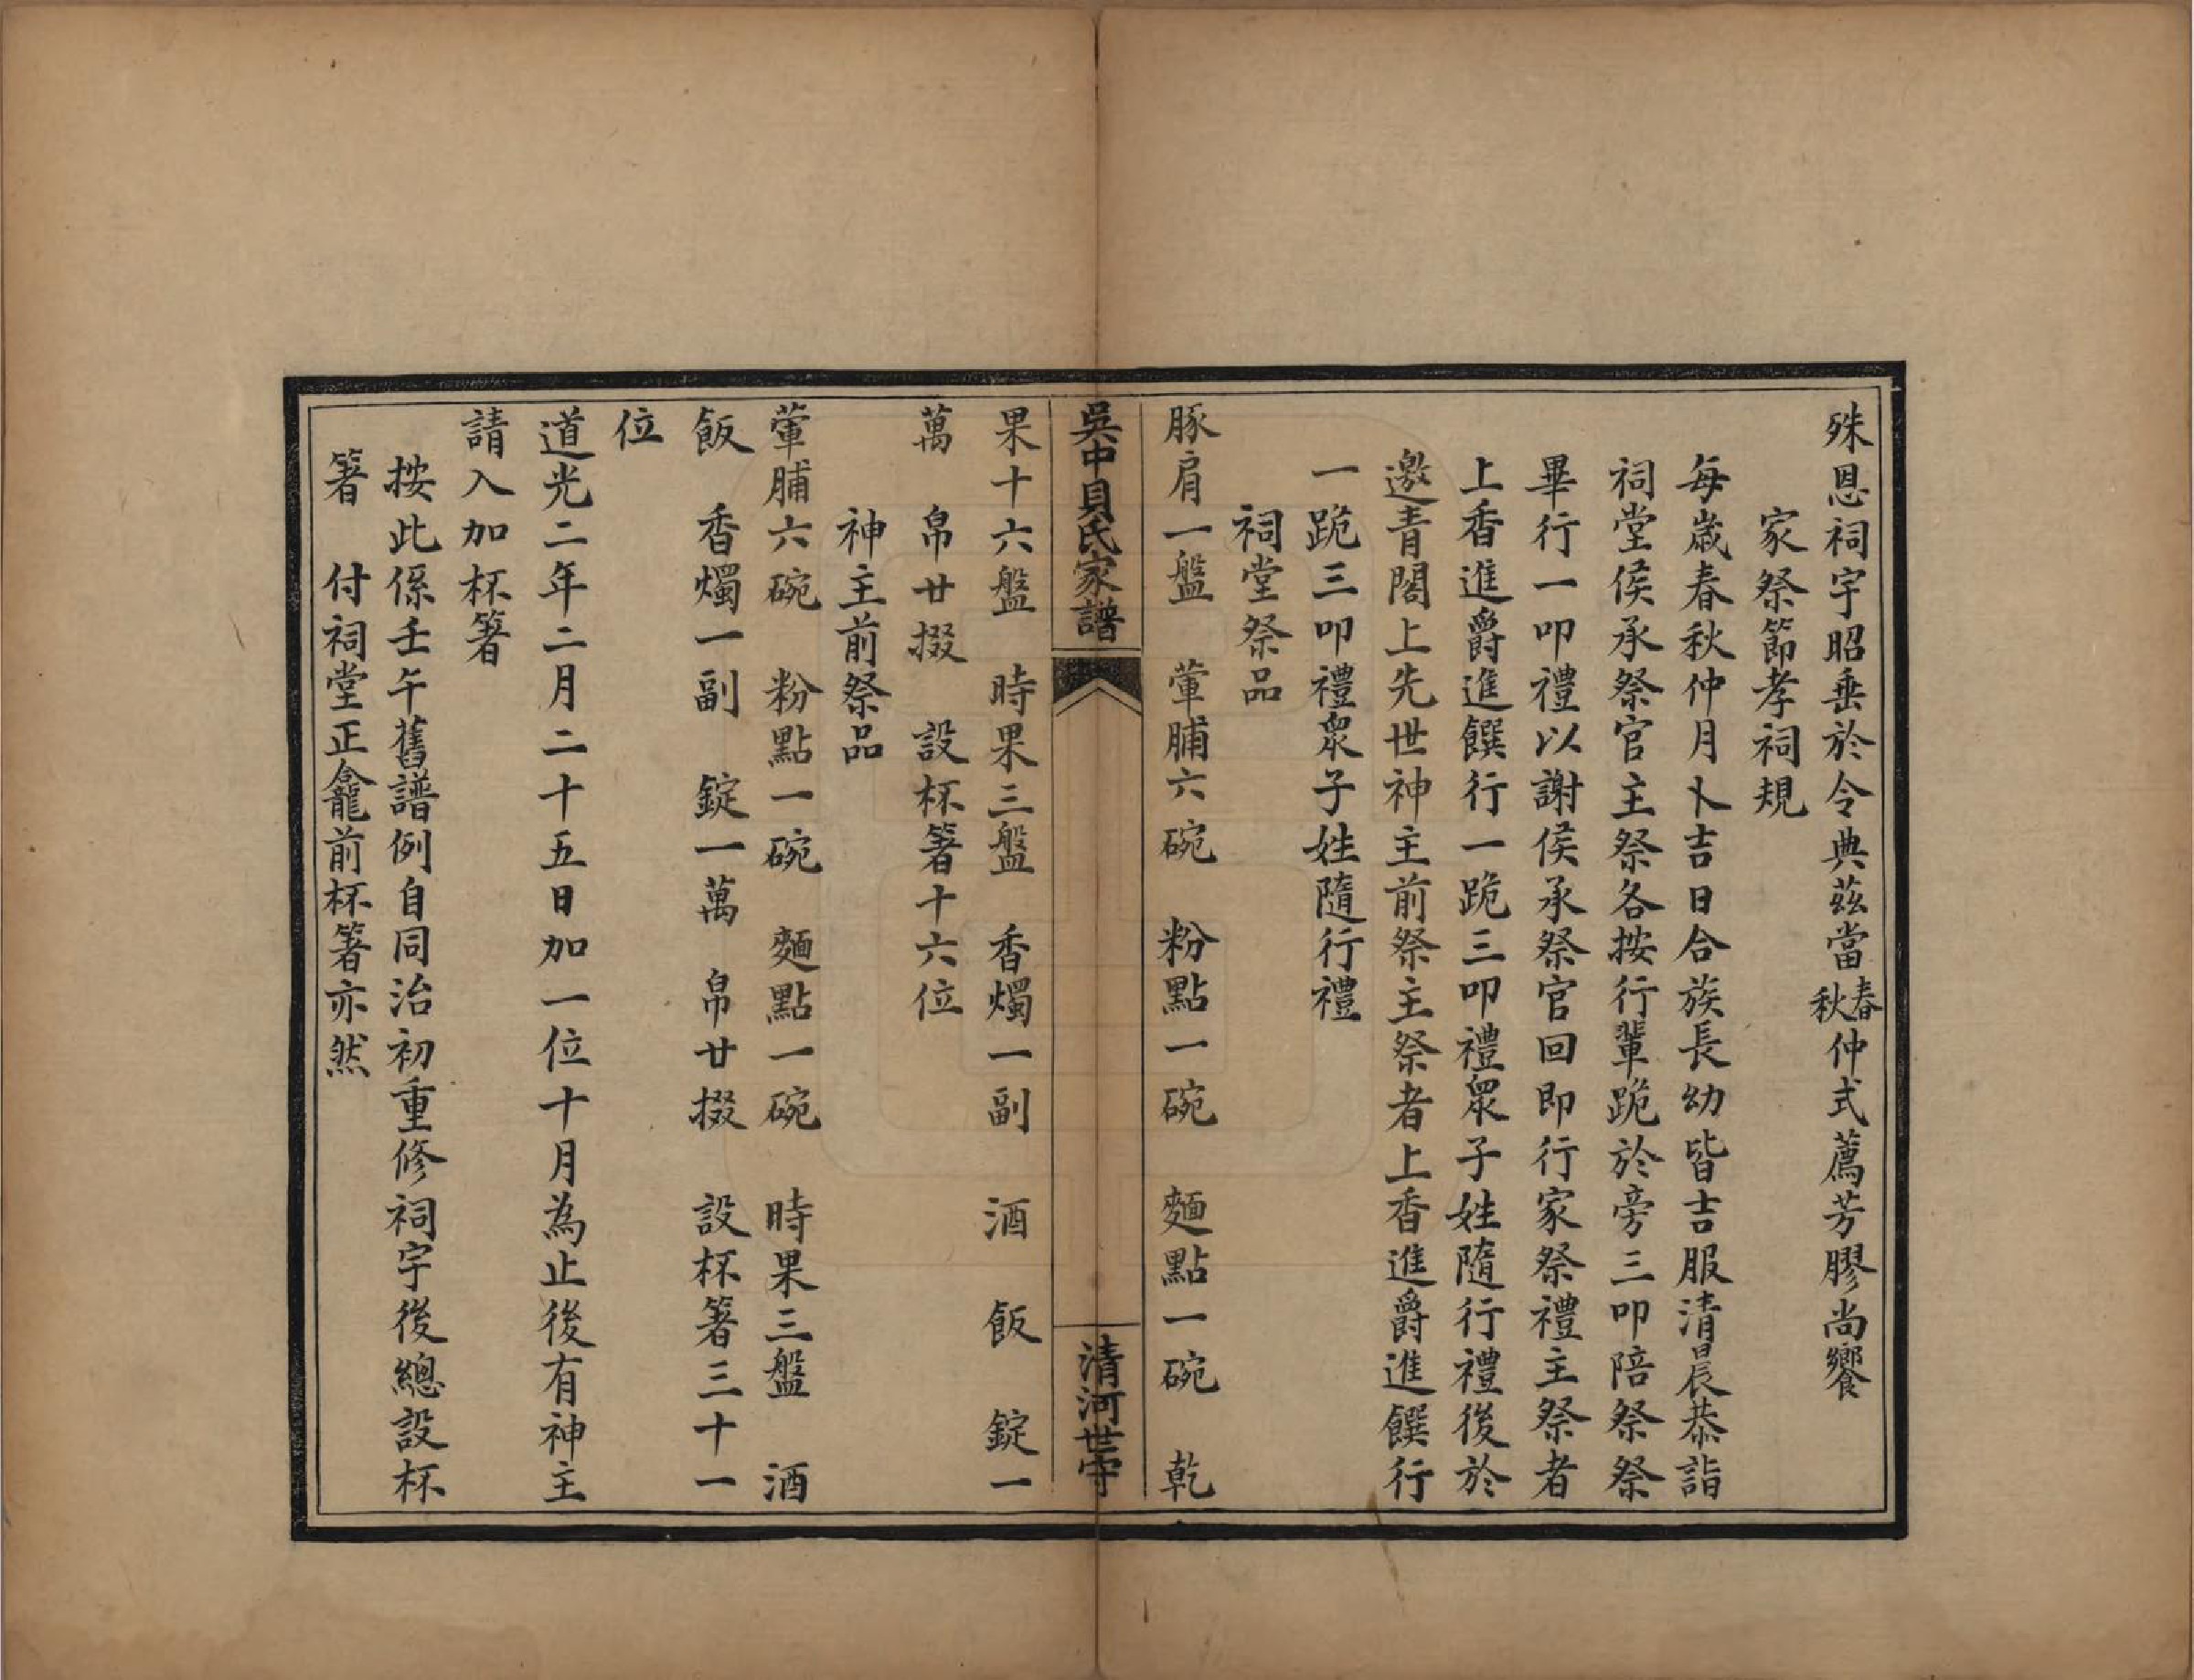 殊恩祠宇昭垂於令典茲當春秋仲式薦芳膠尚饗
家祭節孝祠規
每歲春秋仲月卜吉日合族長幼皆吉服清晨恭詣
祠堂侯承祭官主祭各按行輩跪於旁三叩陪祭祭
畢行一叩禮以謝侯承祭官回即行家祭禮主祭者
上香進爵進饌行一跪三叩禮眾子姓隨行禮後於
邀青閣上先世神主前祭主祭者上香進爵進饌行
一跪三叩禮眾子姓隨行禮
祠堂祭品
豚肩一盤　葷脯六碗　粉點一碗　麵點一碗　乾
吳中貝氏家譜
清河世守
果十六盤　時果三盤　香燭一副　酒　飯　錠一
萬　帛廿掇　設杯箸十六位
神主前祭品
葷脯六碗　粉點一碗　麵點一碗　時果三盤　酒
飯　香燭一副　錠一萬　帛廿掇　設杯箸三十一
位
道光二年二月二十五日加一位十月為止後有神主
請入加杯箸
按此係壬午舊譜例自同治初重修祠宇後總設杯
箸　付祠堂正龕前杯箸亦然